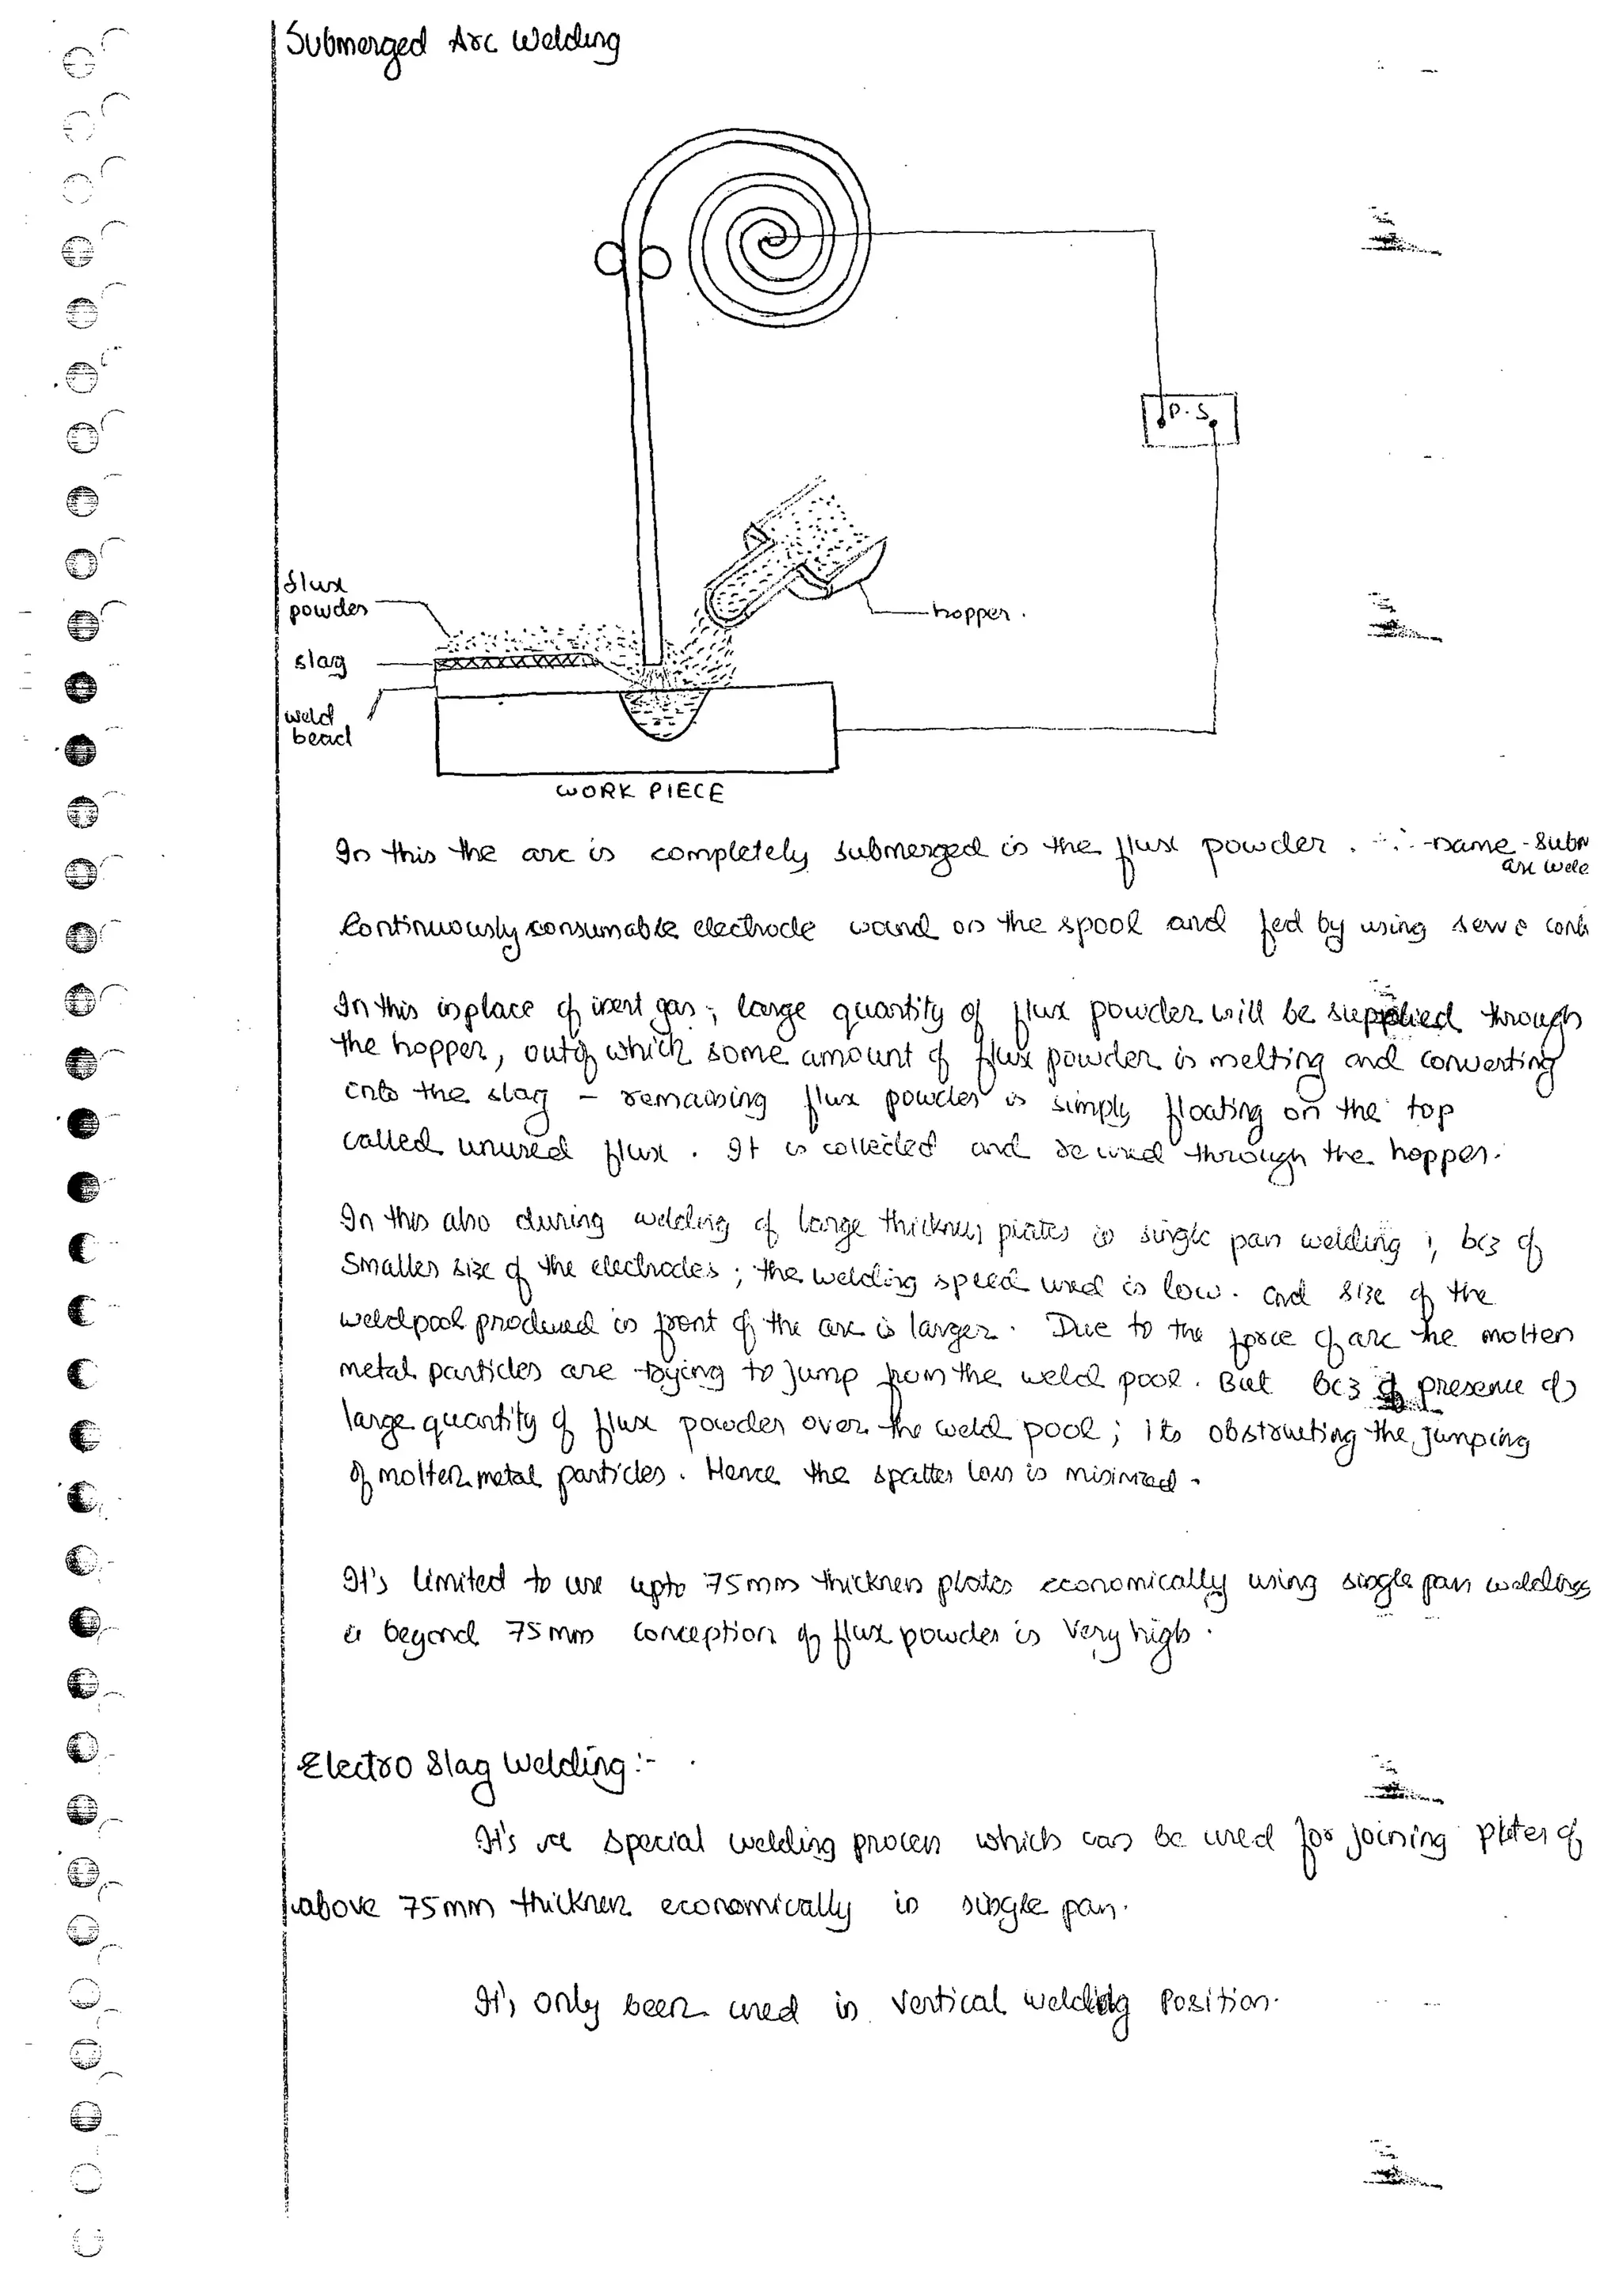 Submerged Arc Welding
P.S.
flux
powder
hopper.
slag
weld
bead
WORK PIECE
In this the arc is completely submerged in the flux powder. ∴ name - Subm
arc weld
Continuously consumable electrode wound on the spool and fed by using servo cont
In this inplace of inert gas; large quantity of flux powder will be supplied through
the hopper, out of which some amount of flux powder is melting and converting
into the slag - remaining flux powder is simply floating on the top
called unused flux. It is collected and reused through the hopper.
In this also during welding of large thickness plates in single pass welding; bcz of
Smaller size of the electrodes; the welding speed used is low. and size of the
weldpool produced in front of the arc is larger. Due to the force of arc the molten
metal particles are trying to jump from the weld pool. But bcz of presence of
large quantity of flux powder over the weld pool; its obstructing the jumping
of molten metal particles. Hence the spatter loss is minimized.
It's limited to use upto 75mm thickness plates economically using single pass welding
beyond 75mm conception of flux powder is Very high.
Electro Slag Welding:-
It's a special welding process which can be used for joining plates of
above 75mm thickness economically in single pass.
It's only been used in vertical welding Position.